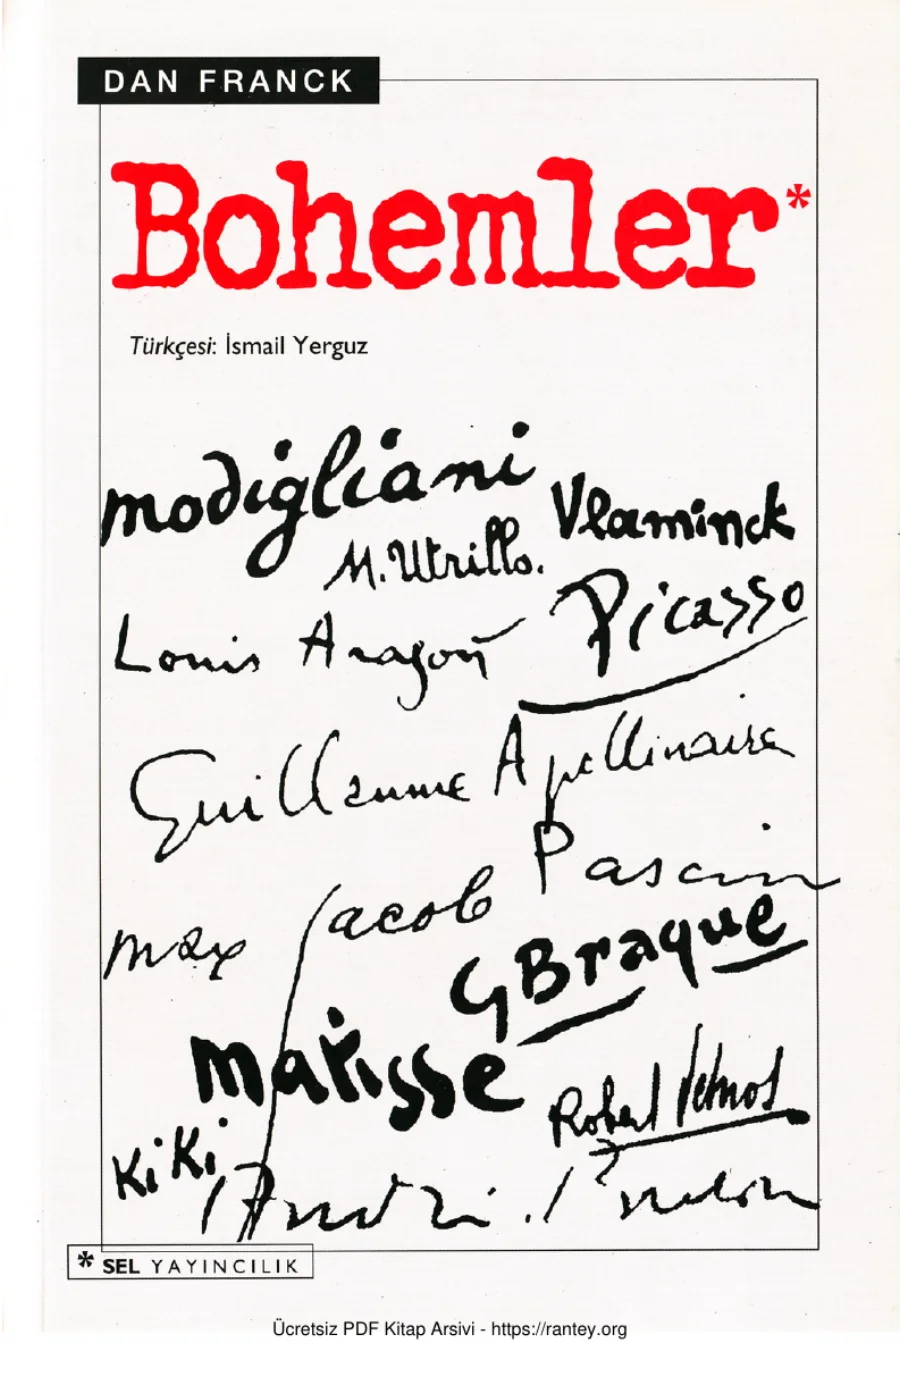 DAN FRANCK
Bohemler*
Türkçesi: İsmail Yerguz
modigliani
Vlaminck
M. Utrillo.
Picasso
Louis Aragon
Guillaume Apollinaire
Pascin
max Jacob
G Braque
matisse
Robert Desnos
Kiki
André Breton
* SEL YAYINCILIK
Ücretsiz PDF Kitap Arsivi - https://rantey.org